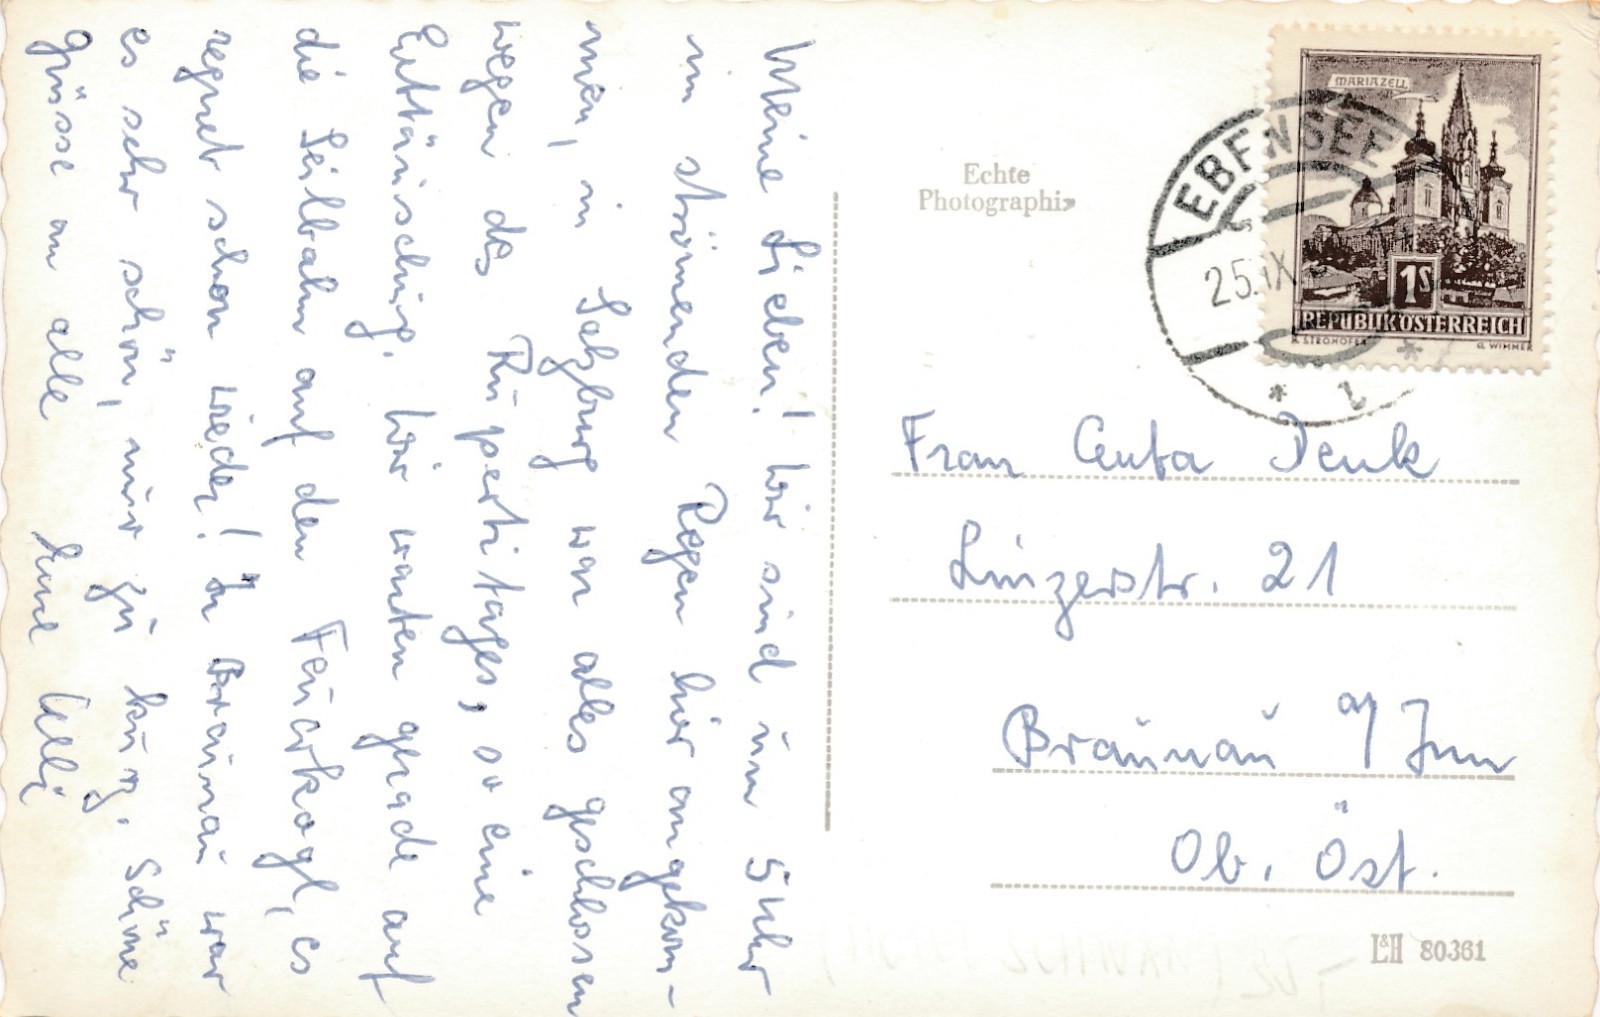 Meine Lieben! Wir sind um 5 Uhr
im strömenden Regen hier angekom-
men, in Salzburg war alles geschlossen
wegen des Rupertitages, so eine
Enttäuschung. Wir warten gerade auf
die Seilbahn auf den Feuerkogl, es
regnet schon wieder! In Braunau war
es sehr schön, nur zu kurz. Schöne
Grüsse an alle Eure Ulli
Echte
Photographie
MARIAZELL
1S
REPUBLIK ÖSTERREICH
R. STROHOFER
G. WIMMER
EBENSEE
25. IX
* 1 *
Frau
Denk
Linzerstr. 21
Braunau a/ Inn
Ob. Öst.
L&H 80361